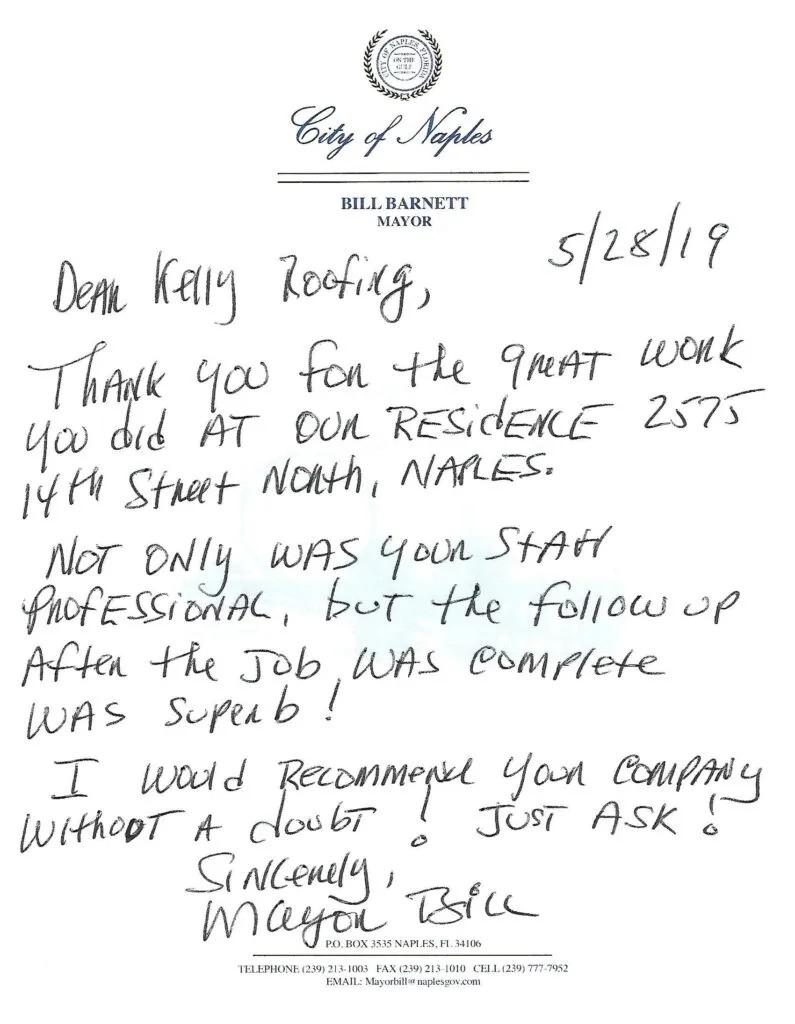 CITY OF NAPLES, FLORIDA
ON THE
GULF
City of Naples
BILL BARNETT
MAYOR
5/28/19
Dear Kelly Roofing,
Thank you for the great work
you did at our residence 2575
14th Street North, Naples.
Not only was your staff
professional, but the follow up
after the job was complete
was superb!
I would recommend your company
without a doubt! Just ask!
Sincerely,
Mayor Bill
P.O. BOX 3535 NAPLES, FL 34106
TELEPHONE (239) 213-1003 FAX (239) 213-1010 CELL (239) 777-7952
EMAIL: Mayorbill@naplesgov.com